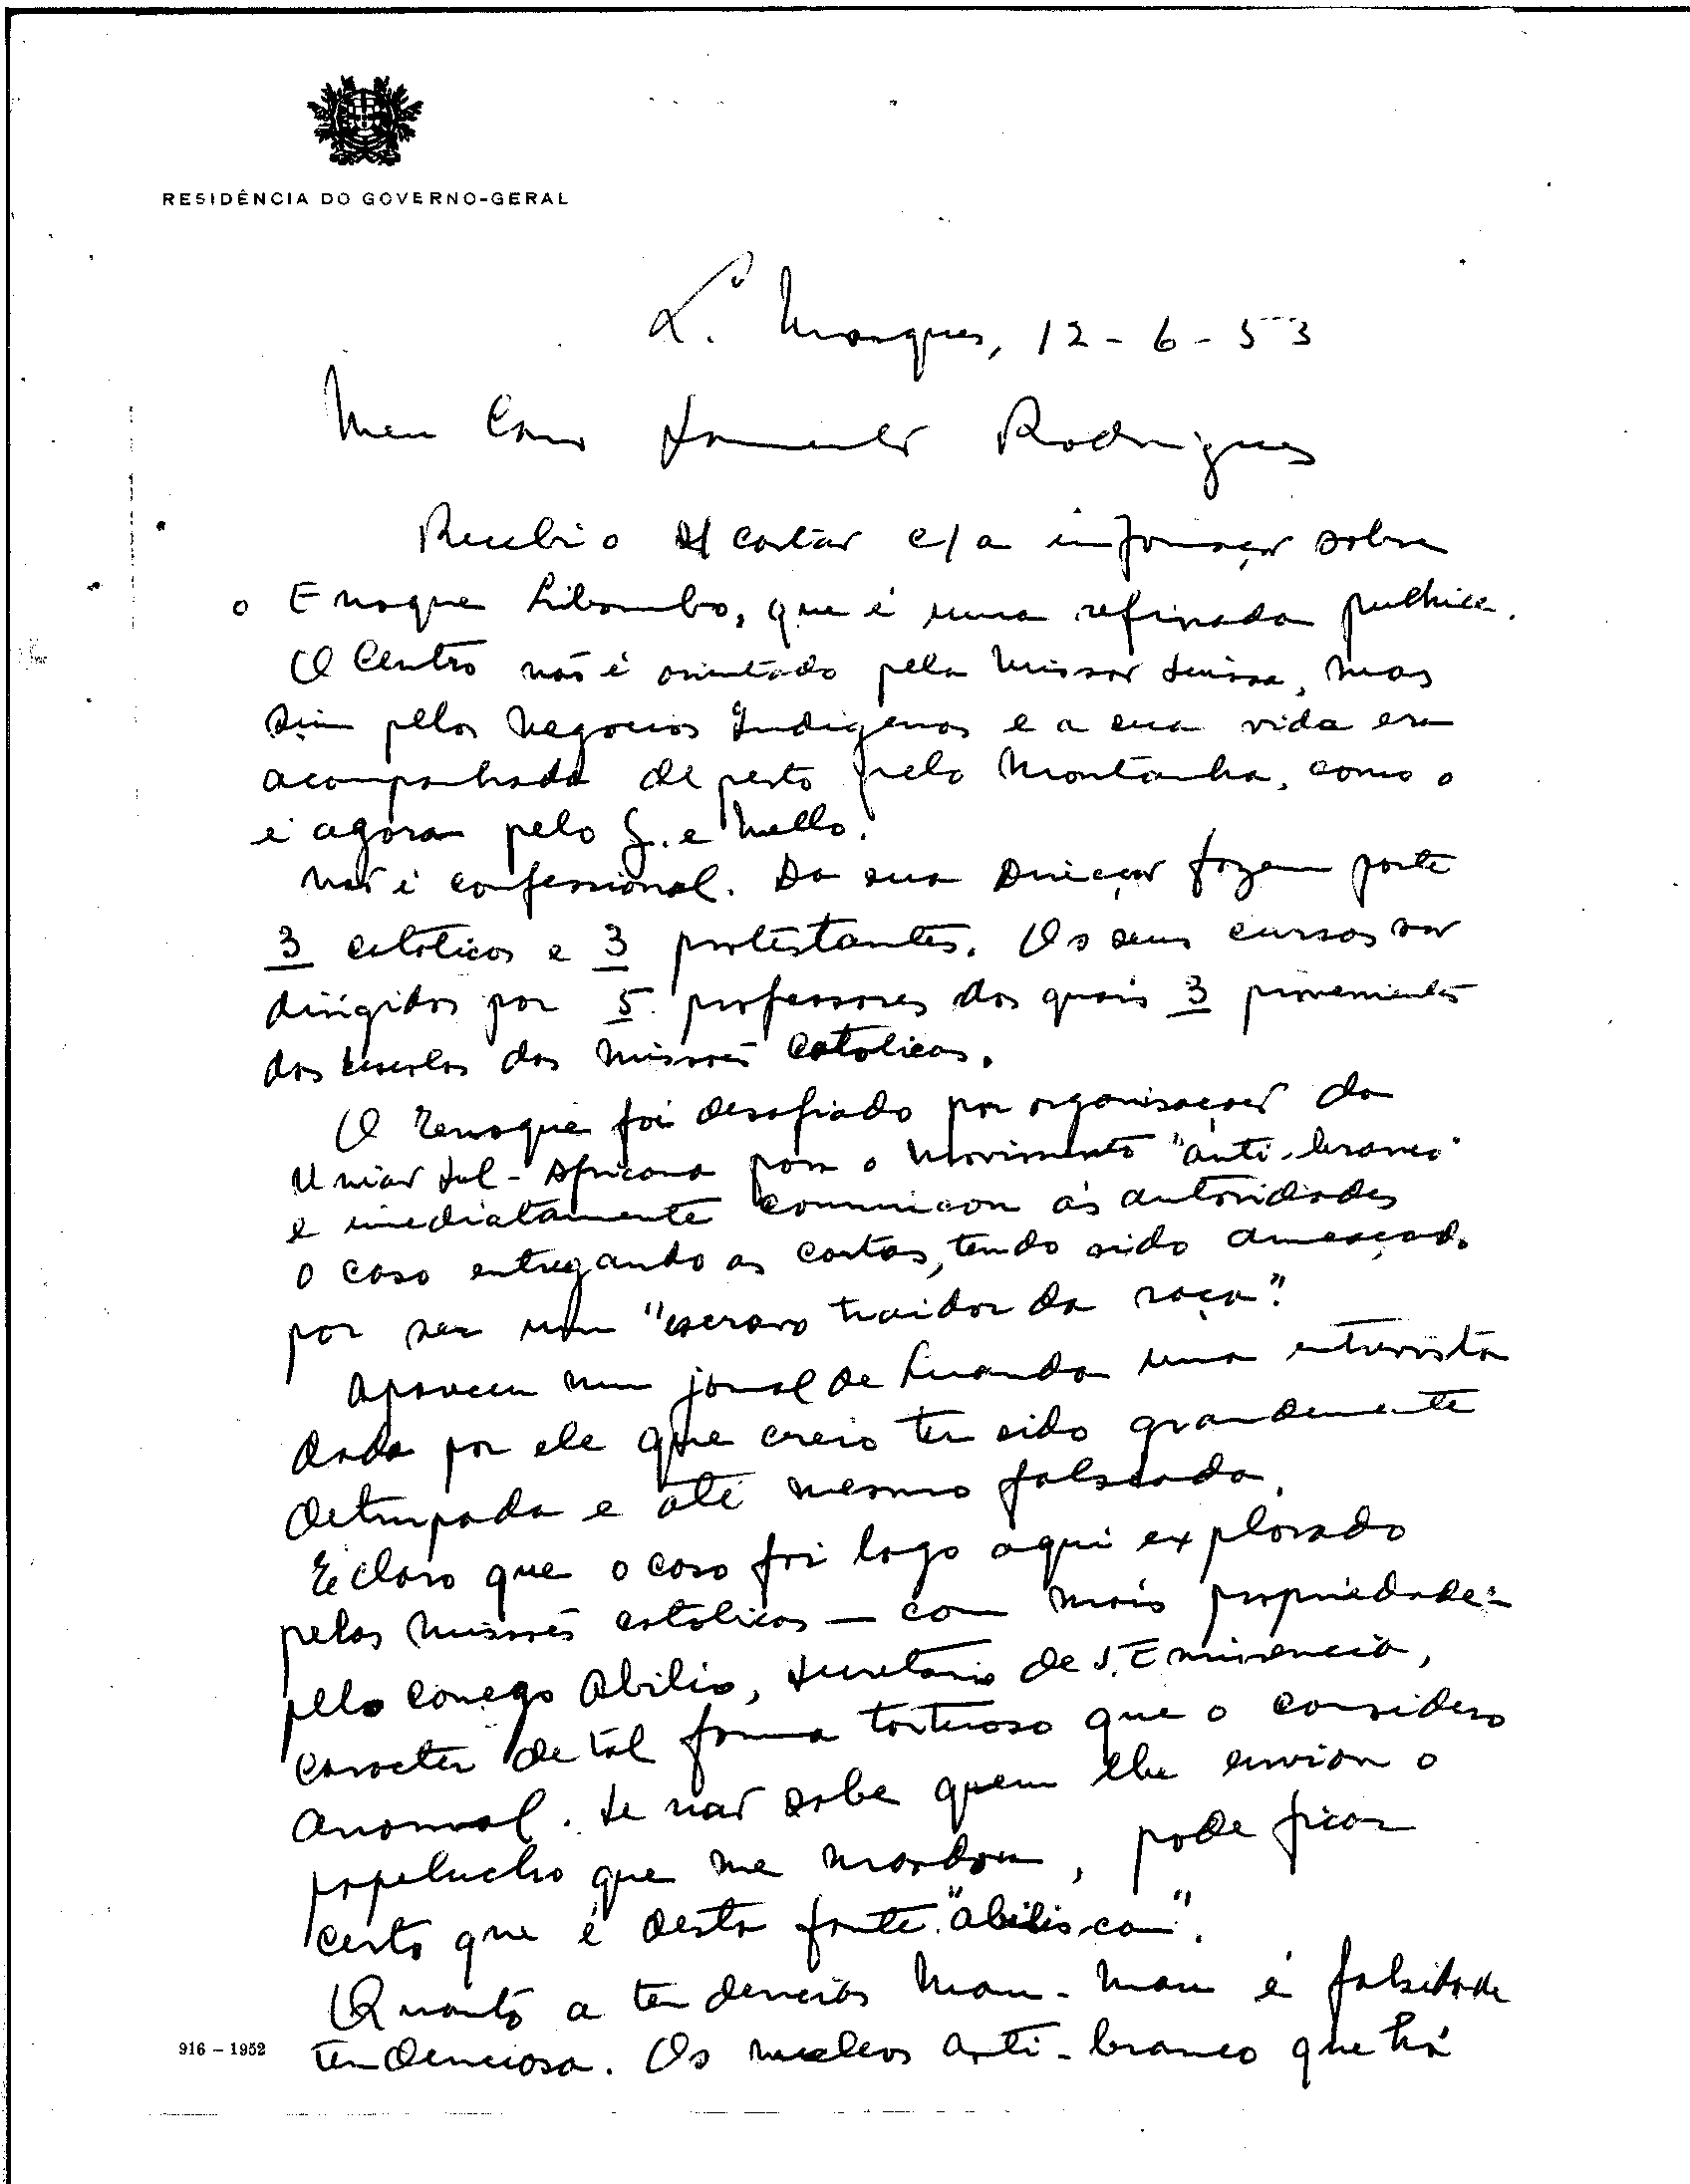 RESIDÊNCIA DO GOVERNO-GERAL
L. Marques, 12-6-53
Meu Caro Sarmento Rodrigues
Recebi o s/ cartão c/ a informação sobre
o Enoque Libombo, que é uma refinada pulhice.
O Centro não é orientado pela Missão Suissa, mas
sim pelos Negocios Indigenas e a sua vida era
acompanhada de perto pelo Montanha, como o
é agora pelo G. e Mello.
Não é confessional. Da sua Direcção fazem parte
3 catolicos e 3 protestantes. Os seus cursos são
dirigidos por 5 professores dos quais 3 provenientes
das Escolas das Missões Catolicas.
O Enoque foi desafiado por organisações da
União Sul-Africana para o movimento "anti-branco"
e imediatamente comunicou ás autoridades
o caso entregando as cartas, tendo sido ameaçado
por ser um "escravo traidor da raça".
Apareceu num jornal de Luanda uma entrevista
dada por ele que creio ter sido grandemente
deturpada e até mesmo falseada.
É claro que o caso foi logo aqui explorado
pelas Missões catolicas — com mais propriedade:
pelo Conego Abilio, Secretario de S. Eminencia,
caracter de tal forma tortuoso que o considero
anormal. Se não sabe quem lhe enviou o
papelucho que me mandou, pode ficar
certo que é desta fonte "abiliscan".
Quanto a tendencias Mau-Mau é falsidade
tendenciosa. Os nucleos anti-branco que há
916 – 1952